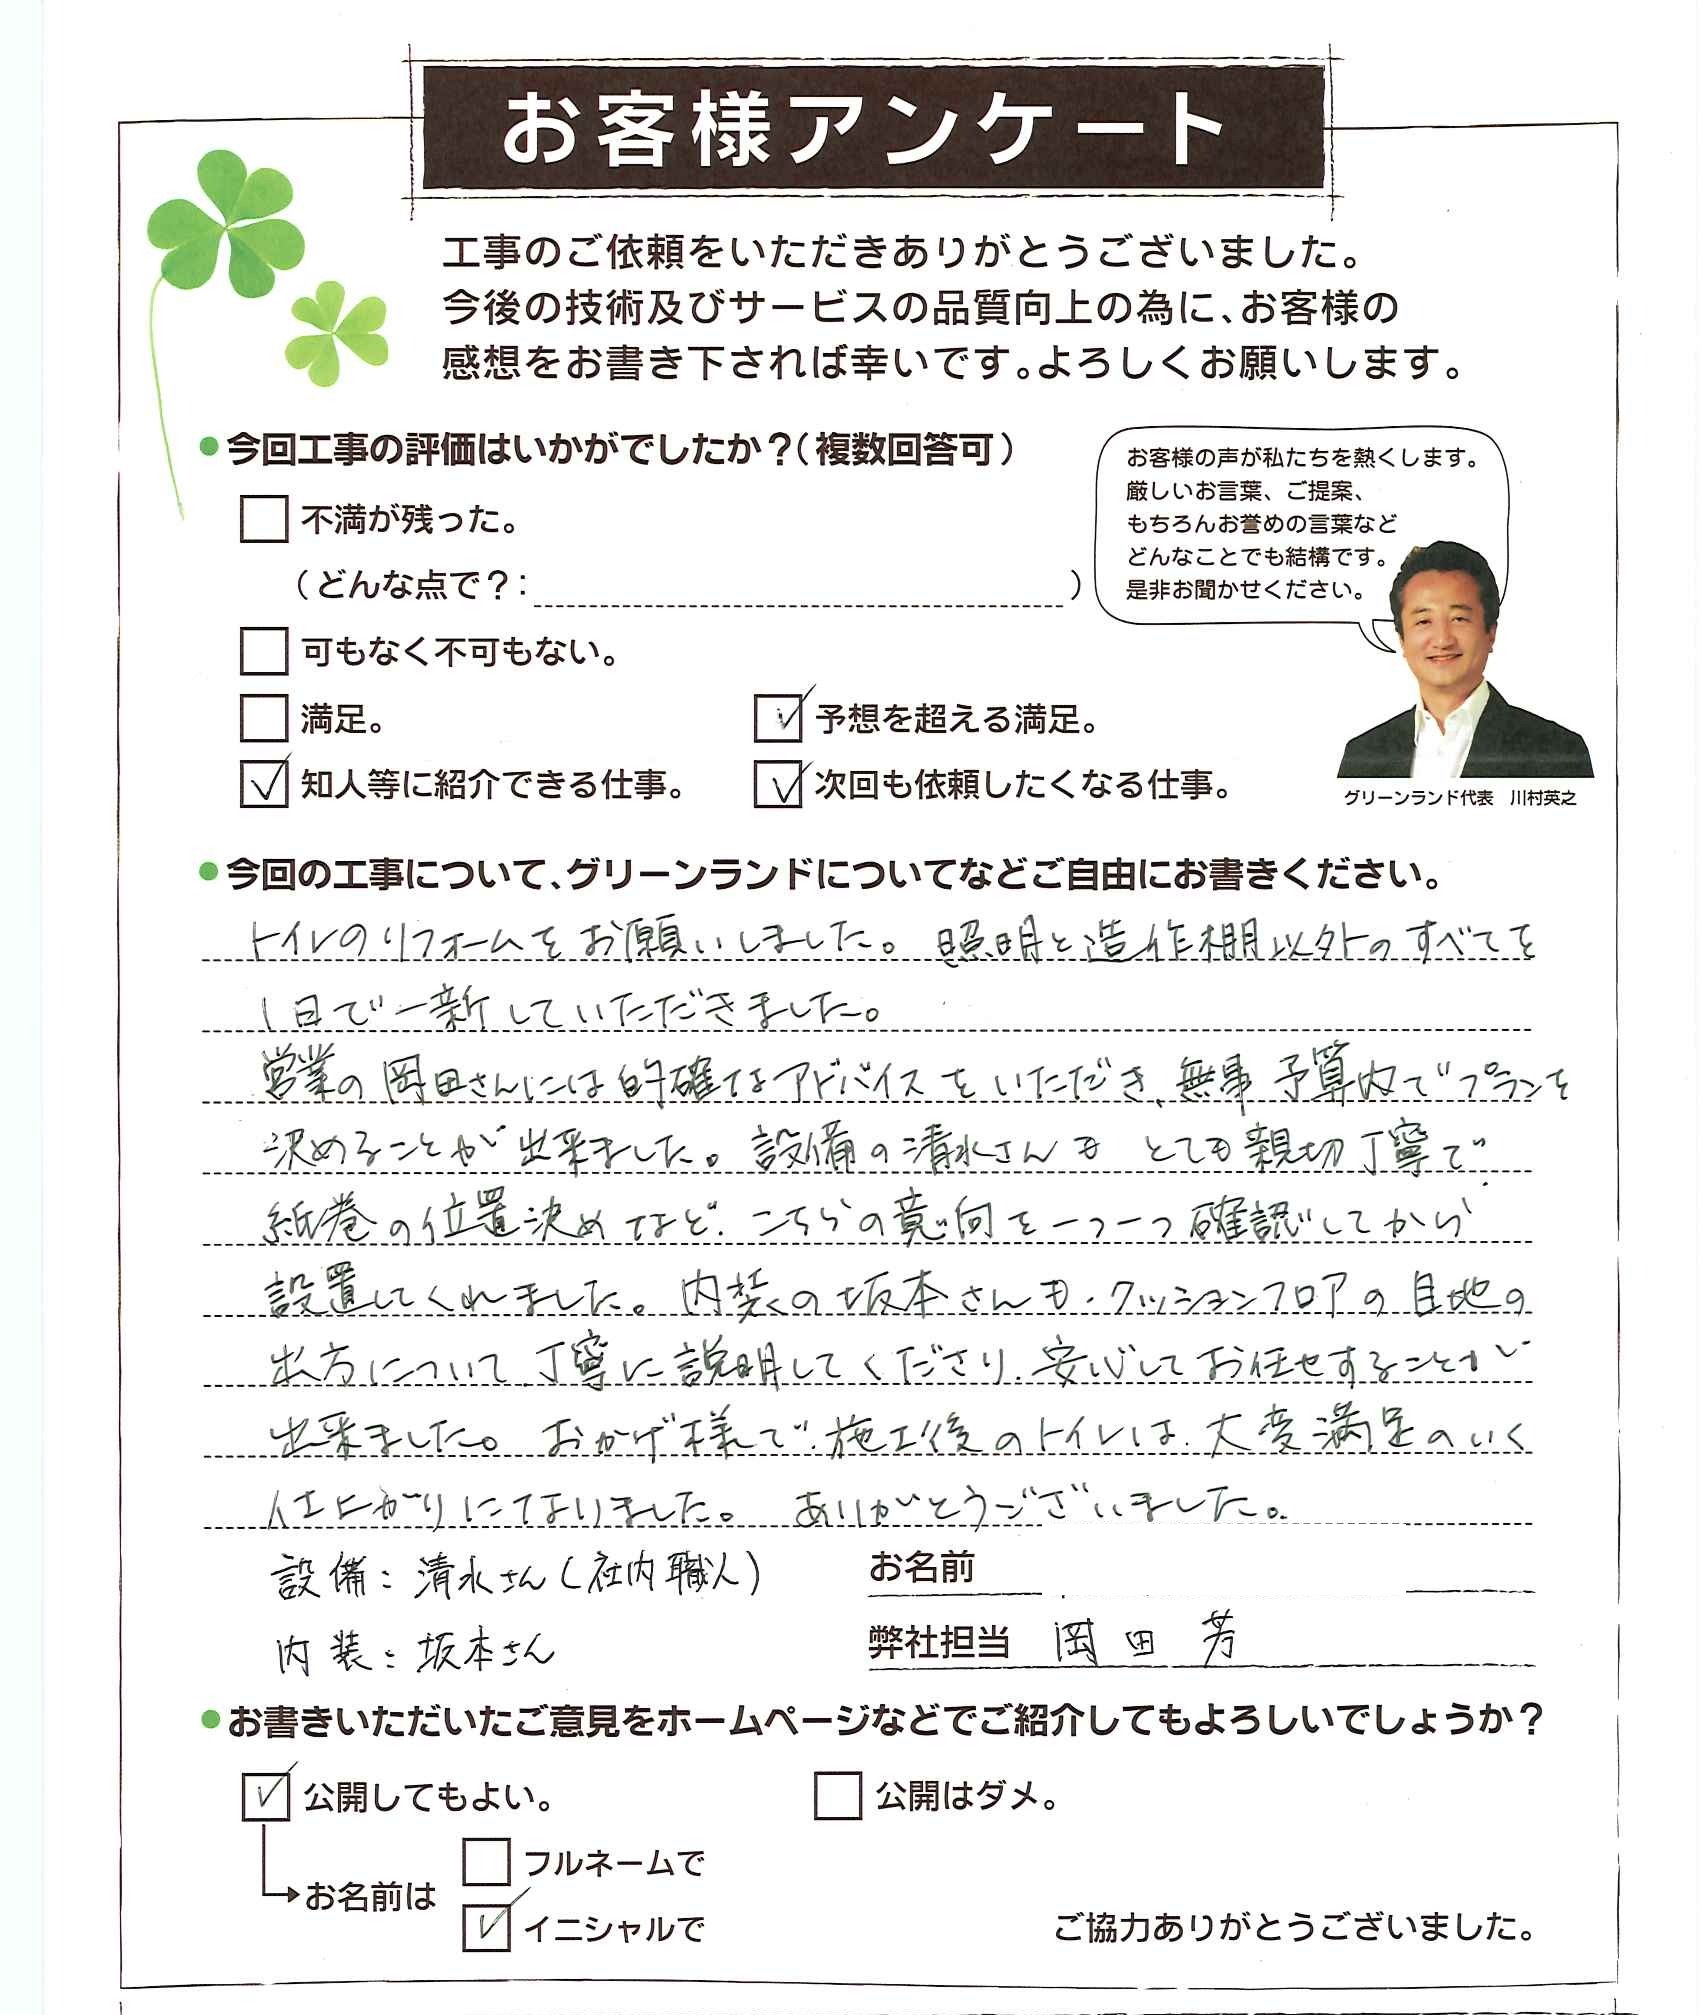 お客様アンケート
工事のご依頼をいただきありがとうございました。
今後の技術及びサービスの品質向上の為に、お客様の
感想をお書き下されば幸いです。よろしくお願いします。
●今回工事の評価はいかがでしたか？（複数回答可）
お客様の声が私たちを熱くします。
厳しいお言葉、ご提案、
もちろんお誉めの言葉など
どんなことでも結構です。
是非お聞かせください。
グリーンランド代表　川村英之
□不満が残った。
（どんな点で？：　　　）
□可もなく不可もない。
□満足。　☑予想を超える満足。
☑知人等に紹介できる仕事。　☑次回も依頼したくなる仕事。
●今回の工事について、グリーンランドについてなどご自由にお書きください。
トイレのリフォームをお願いしました。照明と造作棚以外のすべてを
1日で一新していただきました。
営業の岡田さんには的確なアドバイスをいただき、無事予算内でプランを
決めることが出来ました。設備の清水さんもとても親切丁寧で
紙巻の位置決めなど、こちらの意向を一つ一つ確認してから
設置してくれました。内装の坂本さんも、クッションフロアの目地の
出方について、丁寧に説明してくださり、安心してお任せすることが
出来ました。おかげ様で、施工後のトイレは、大変満足のいく
仕上がりになりました。ありがとうございました。
設備：清水さん（社内職人）　お名前
内装：坂本さん　弊社担当　岡田　芳
●お書きいただいたご意見をホームページなどでご紹介してもよろしいでしょうか？
☑公開してもよい。　□公開はダメ。
→お名前は　□フルネームで
☑イニシャルで
ご協力ありがとうございました。